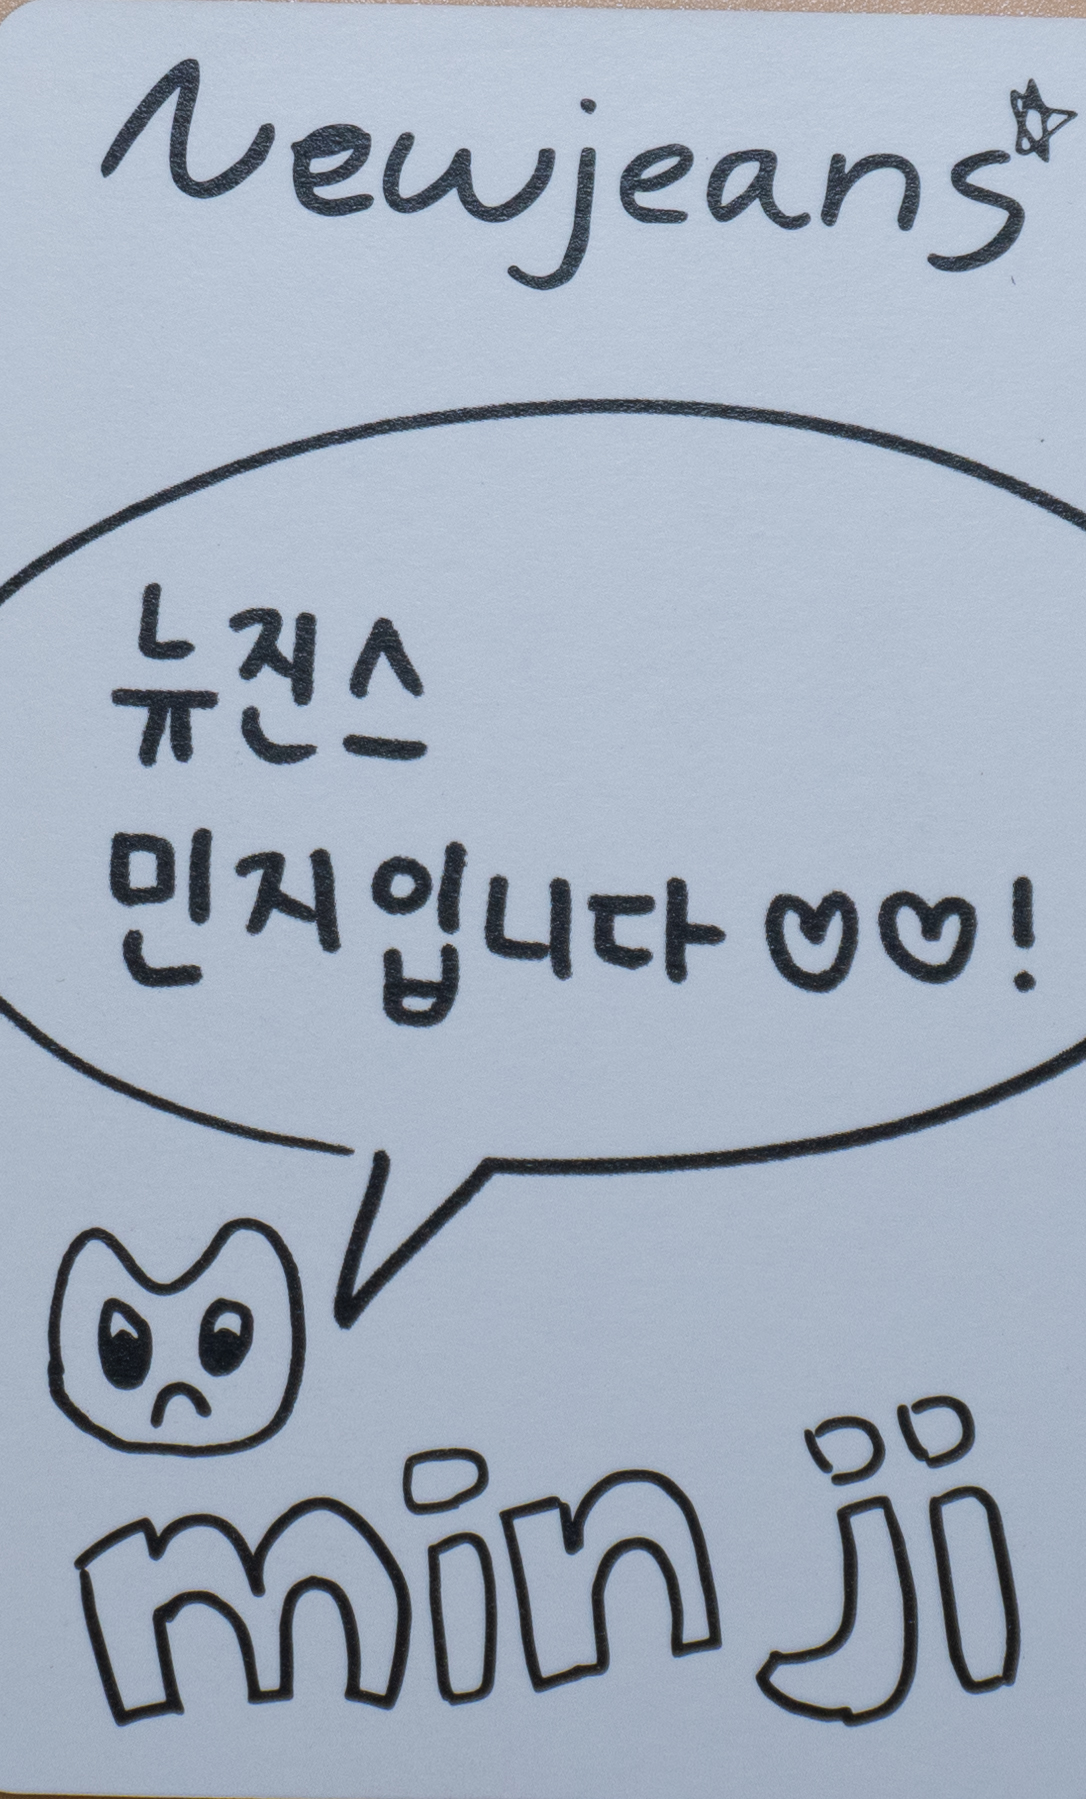 Newjeans☆
뉴진스
민지입니다♡♡!
minji